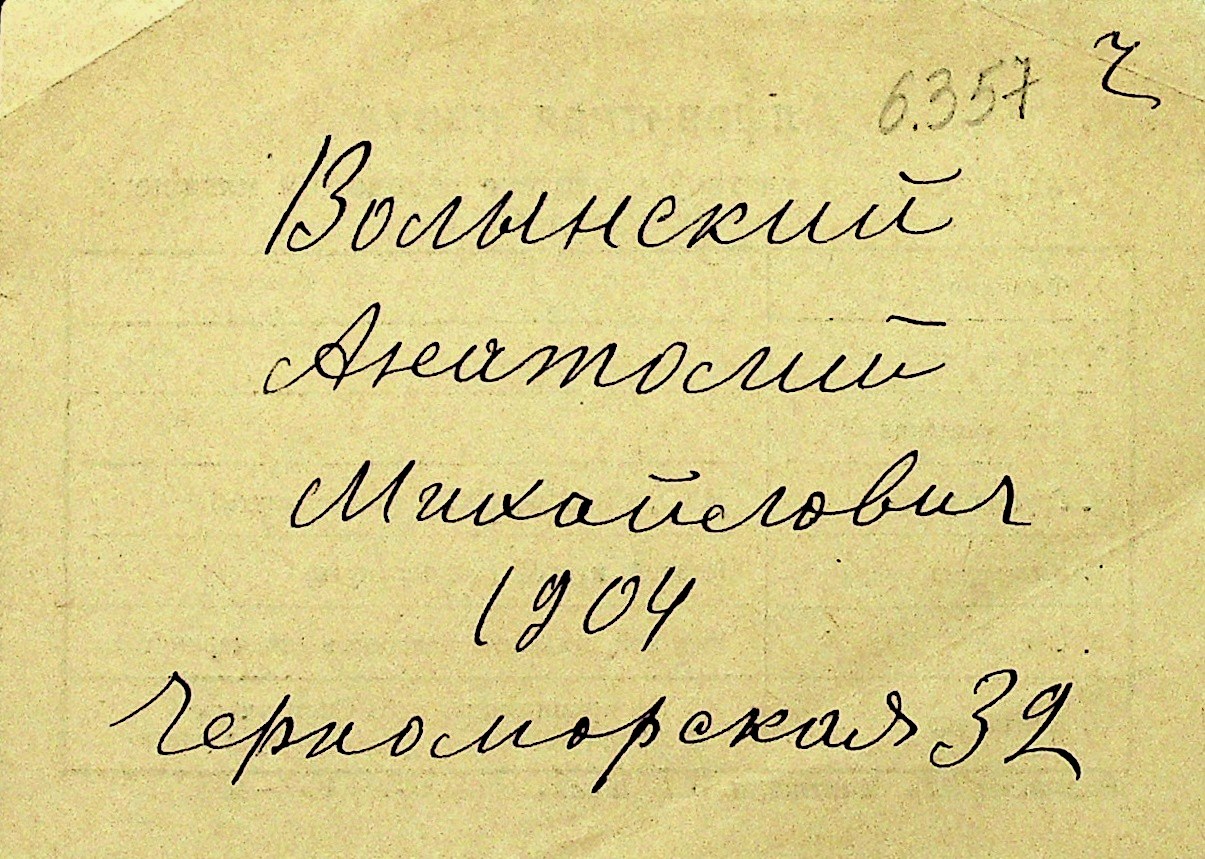 6.357 Ч
Волынский
Анатолий
Михайлович
1904
Черноморская 32